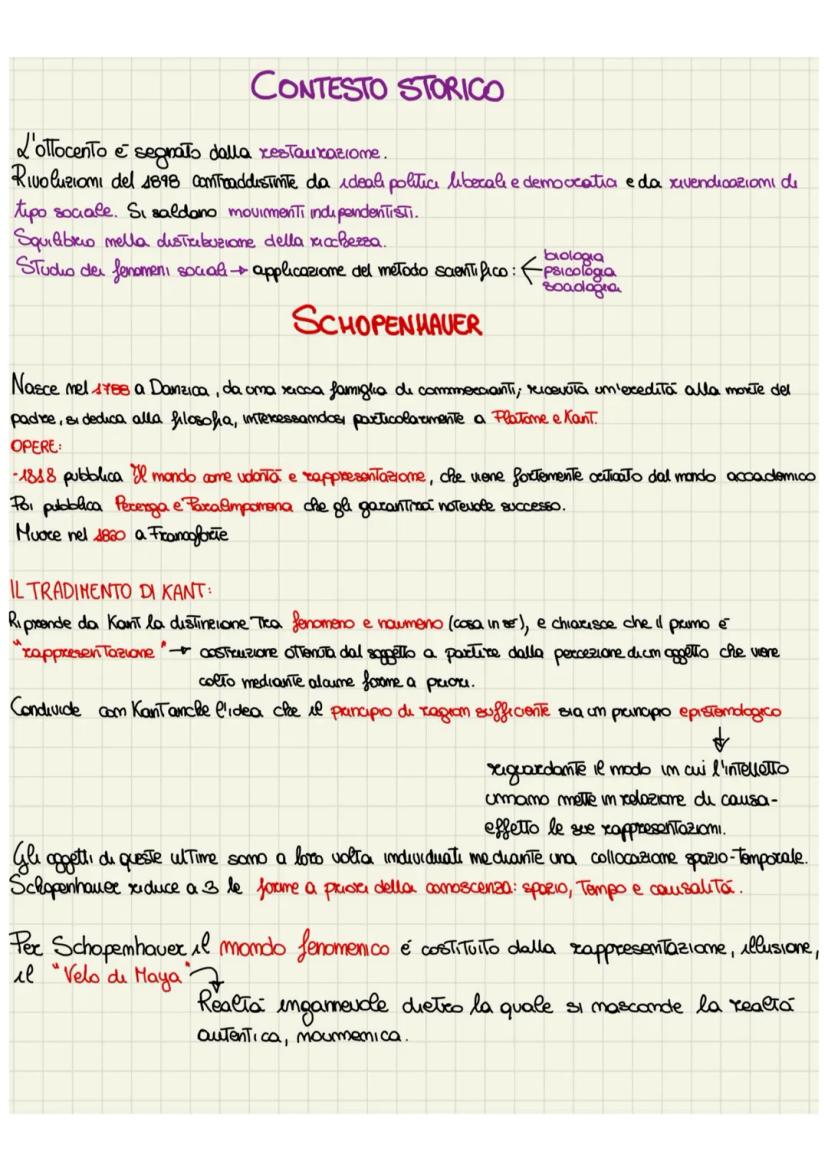 CONTESTO STORICO
L'ottocento è segnato dalla restaurazione.
Rivoluzioni del 1898 contraddistinte da ideali politici liberali e democratici e da rivendicazioni di
tipo sociale. Si saldano movimenti indipendentisti.
Squilibrio nella distribuzione della ricchezza.
Studio dei fenomeni sociali → applicazione del metodo scientifico:
biologia
psicologia
sociologia
SCHOPENHAUER
Nasce nel 1788 a Danzica, da una ricca famiglia di commercianti; ricevuta un'eredità alla morte del
padre, si dedica alla filosofia, interessandosi particolarmente a Platone e Kant.
OPERE:
-1818 pubblica Il mondo come volontà e rappresentazione, che viene fortemente criticato dal mondo accademico
Poi pubblica Parerga e Paralipomena che gli garantirà notevole successo.
Muore nel 1860 a Francoforte
IL TRADIMENTO DI KANT:
Riprende da Kant la distinzione tra fenomeno e noumeno (cosa in sé), e chiarisce che il primo è
"rappresentazione" → costruzione ottenuta dal soggetto a partire dalla percezione di un oggetto che viene
colto mediante alcune forme a priori.
Condivide con Kant anche l'idea che il principio di ragion sufficiente sia un principio epistemologico
↓
riguardante il modo in cui l'intelletto
umano mette in relazione di causa-
effetto le sue rappresentazioni.
Gli oggetti di queste ultime sono a loro volta individuati mediante una collocazione spazio-temporale.
Schopenhauer riduce a 3 le forme a priori della conoscenza: spazio, tempo e causalità.
Per Schopenhauer il mondo fenomenico è costituito dalla rappresentazione, illusione,
il "Velo di Maya"
Realtà ingannevole dietro la quale si nasconde la realtà
autentica, noumenica.